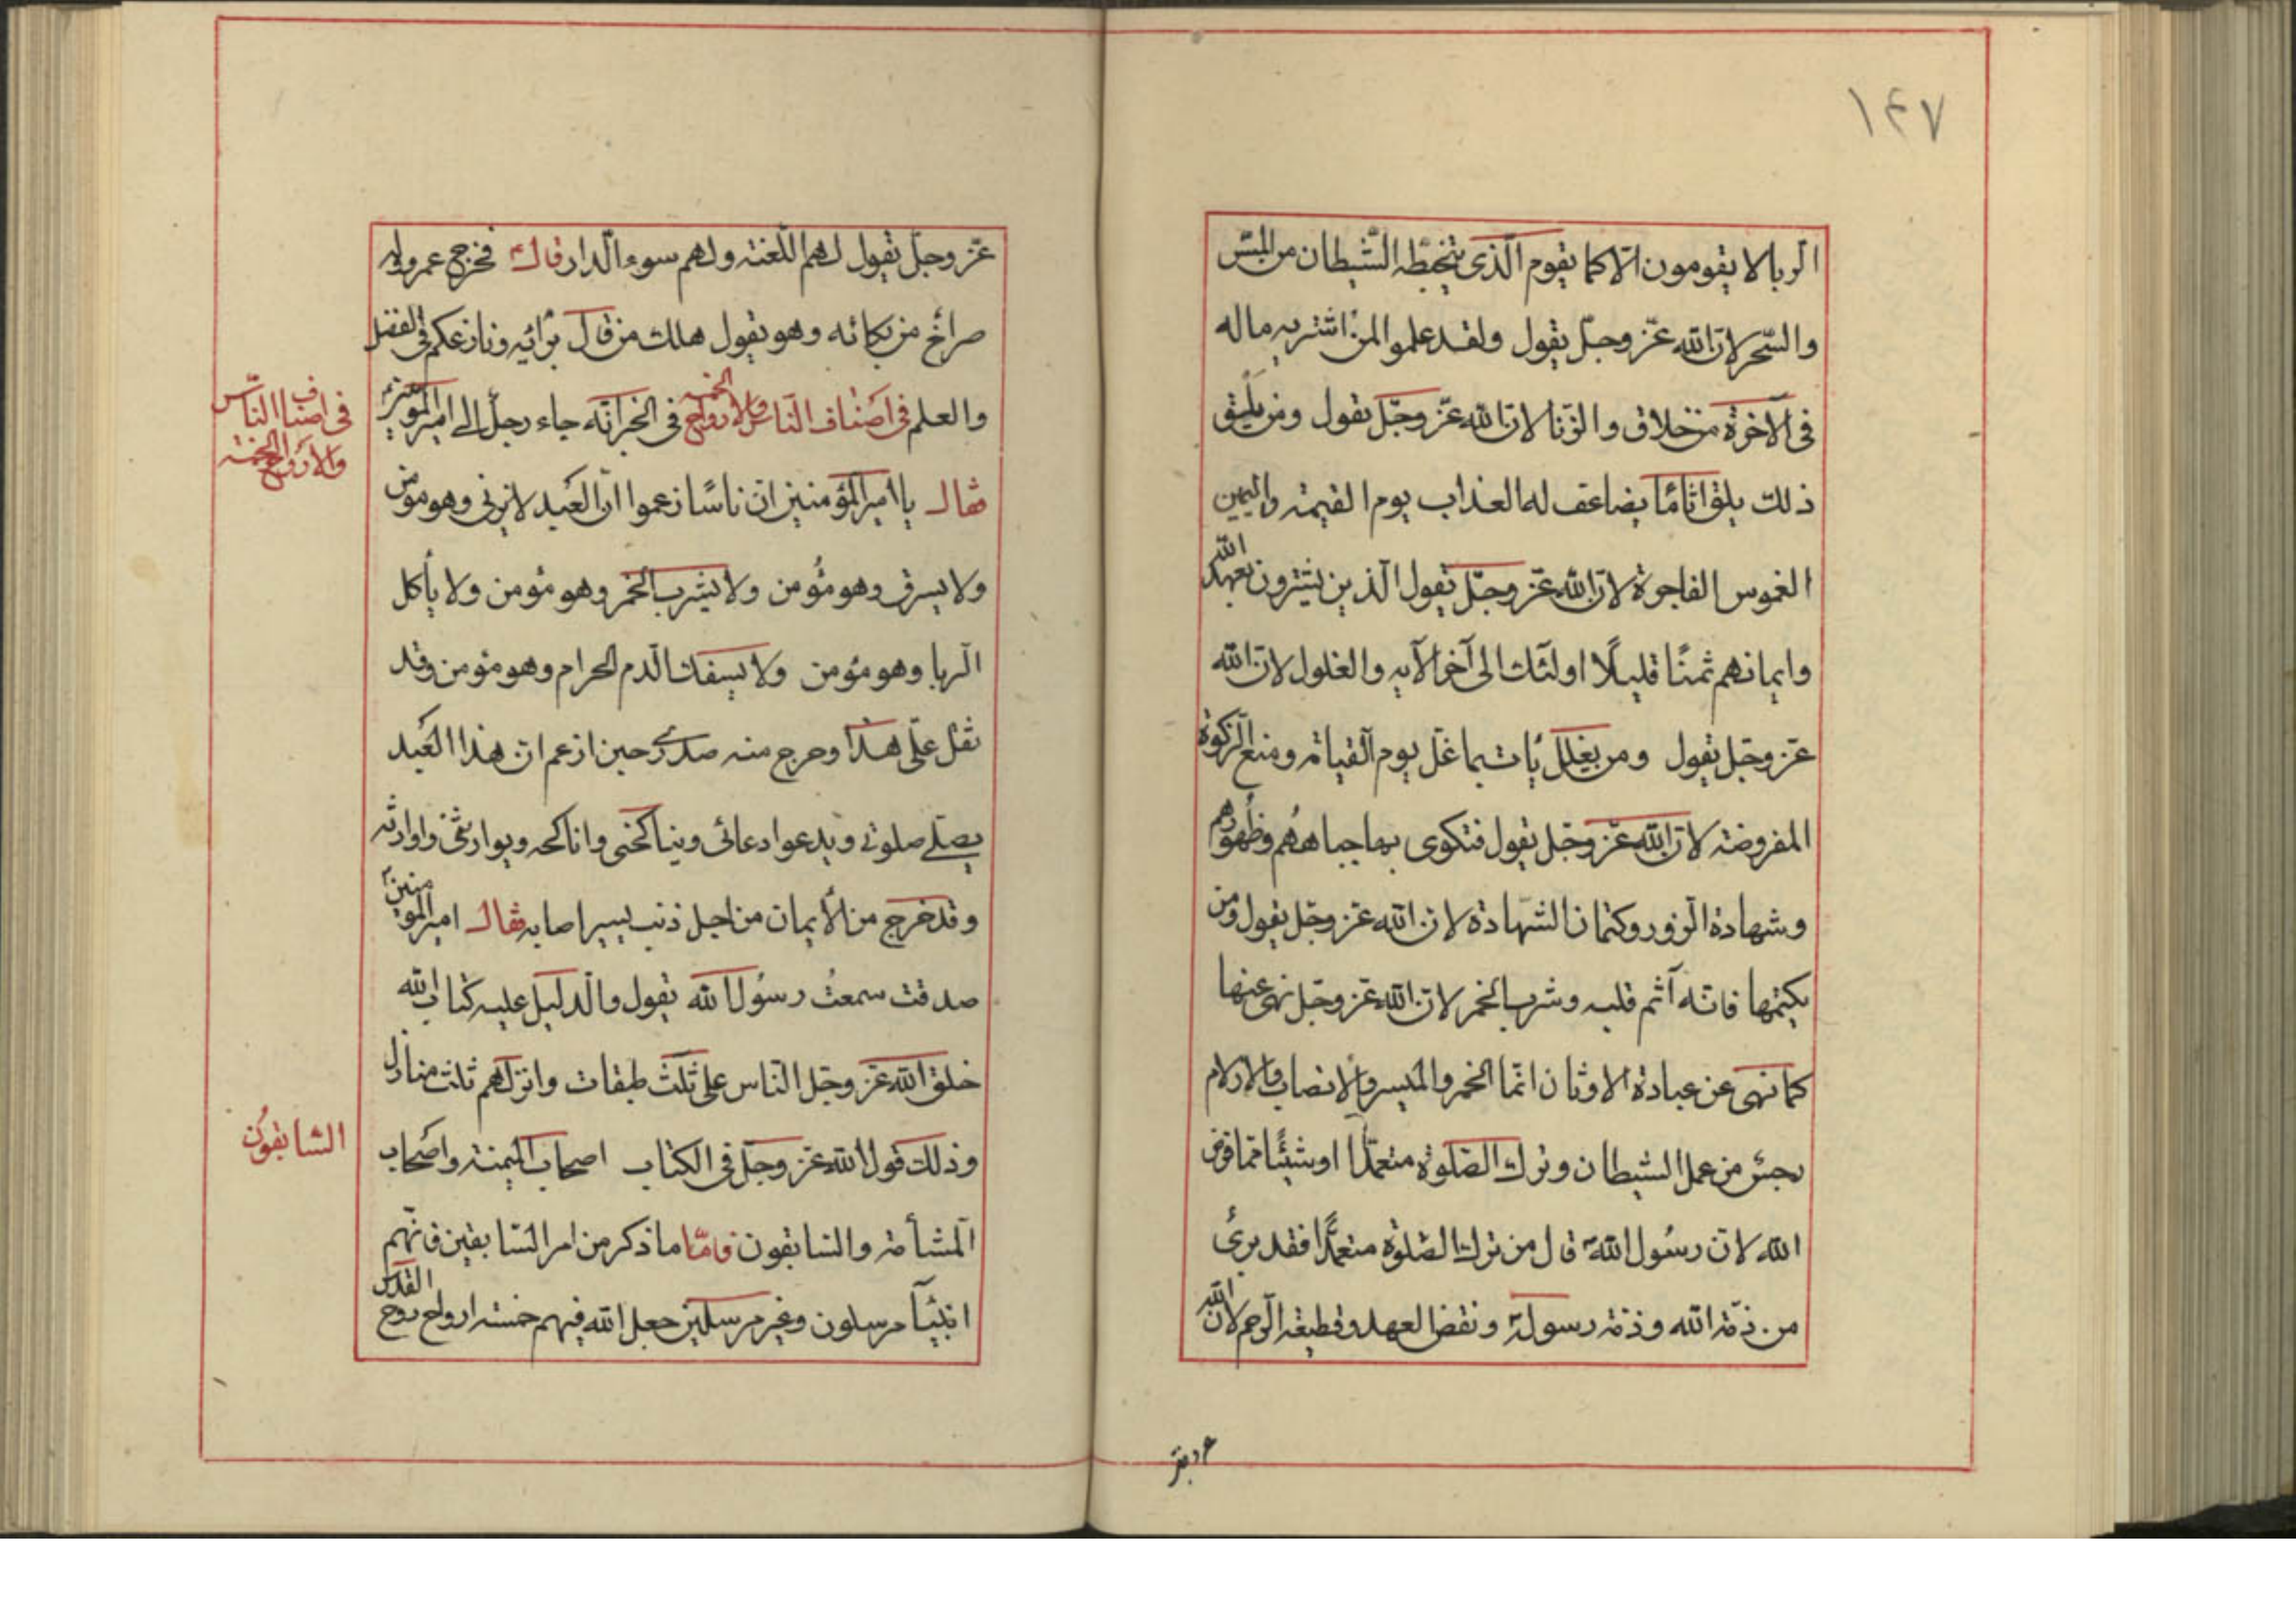 ۱۴۷
الربا لا يقومون الا كما يقوم الذى يتخبطه الشيطان من المس
والسحر لان الله عز وجل يقول ولقد علموا لمن اشتريه ماله
فى الآخرة من خلاق والزنا لان الله عز وجل يقول ومن
ذلك يلق اثاما يضاعف له العذاب يوم القيمة واليمين
الغموس الفاجرة لان الله عز وجل يقول الذين يشترون بعهد الله
وايمانهم ثمنا قليلا اولئك الى آخر الآيه والغلول لان الله
عز وجل يقول ومن يغلل يات بما غل يوم القيامة ومنع الزكوة
المفروضة لان الله عز وجل يقول فتكوى بها جباههم وظهورهم
وشهادة الزور وكتمان الشهادة لان الله عز وجل يقول ومن
يكتمها فانه آثم قلبه وشرب الخمر لان الله عز وجل نهى عنها
كما نهى عن عبادة الاوثان انما الخمر والميسر والانصاب والازلام
رجس من عمل الشيطان وترك الصلوة متعمدا او شيئا مما فرض
الله لان رسول الله قال من ترك الصلوة متعمدا فقد برئ
من ذمة الله وذمة رسوله ونقض العهد وقطيعة الرحم لان الله
عز وجل يقول لهم اللعنة ولهم سوء الدار قال فخرج عمرو وله
صراخ من بكائه وهو يقول هلك من قال برائيه ونازعكم فى الفضل
والعلم فى اصناف الناس والارواح الخمسه فى الخبر انه جاء رجل الى امير المؤمنين
فقال يا امير المؤمنين ان ناسا زعموا ان العبد لا يزنى وهو مؤمن
ولا يسرق وهو مؤمن ولا يشرب الخمر وهو مؤمن ولا يأكل
الربا وهو مؤمن ولا يسفك الدم الحرام وهو مؤمن وقد
ثقل على هذا وحرج منه صدرى حين ازعم ان هذا العبد
يصلى صلوتى ويدعوا دعائى ويناكحنى واناكحه ويوارثنى واوارثه
وقد خرج من الأيمان من اجل ذنب يسير اصابه فقال امير المؤمنين
صدقت سمعت رسول الله يقول والدليل عليه كتاب الله
خلق الله عز وجل الناس على ثلث طبقات وانزلهم ثلث منازل
وذلك قول الله عز وجل فى الكتاب اصحاب الميمنة واصحاب
المشأمة والسابقون فاما ما ذكر من امر السابقين فانهم
انبيآ مرسلون وغير مرسلين جعل الله فيهم خمسة ارواح روح القدس
فى اصناف الناس
والارواح الخمسة
السابقون